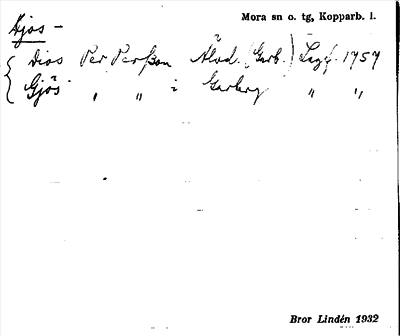 Mora sn o. tg, Kopparb. l.
Djos –
Dios Per Persson Älvd. (Garb.) Lagf. 1757
Gjös " " i Garberg " "
Bror Lindén 1932